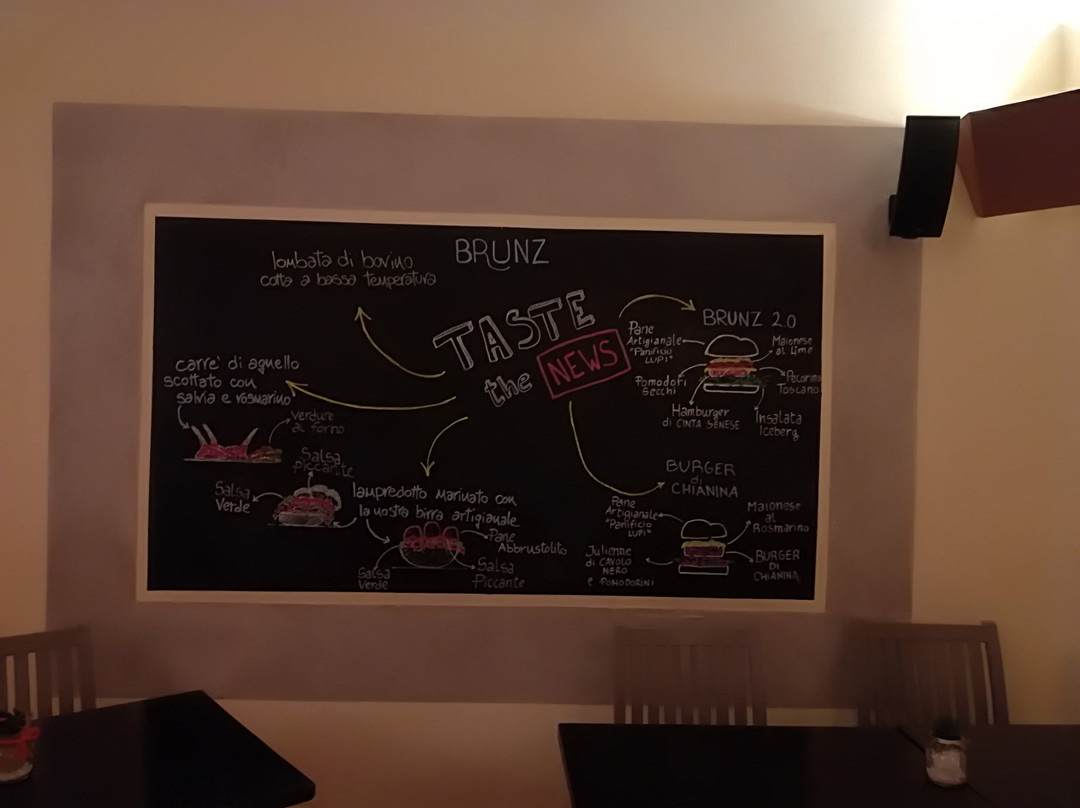 BRUNZ
TASTE
the NEWS
lombata di bovino
cotta a bassa temperatura
carre' di agnello
scottato con
salvia e rosmarino
verdure
al forno
Salsa
Piccante
Salsa
Verde
lampredotto marinato con
la nostra birra artigianale
Pane
Abbrustolito
Salsa
Verde
Salsa
Piccante
BRUNZ 2.0
Pane
Artigianale
"Panificio
LUPI"
Maionese
al Lime
Pomodori
Secchi
Pecorino
Toscano
Hamburger
di CINTA SENESE
Insalata
Iceberg
BURGER
di
CHIANINA
Pane
Artigianale
"Panificio
LUPI"
Maionese
al
Rosmarino
Julienne
di CAVOLO
NERO
e POMODORINI
BURGER
DI
CHIANINA